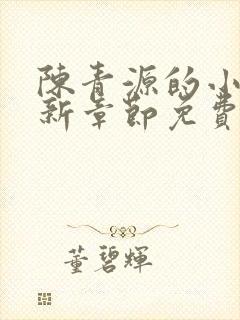 陳青源的小
新章節免費
董碧輝